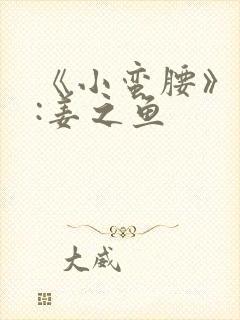 《小蛮腰》
:姜之鱼
大威